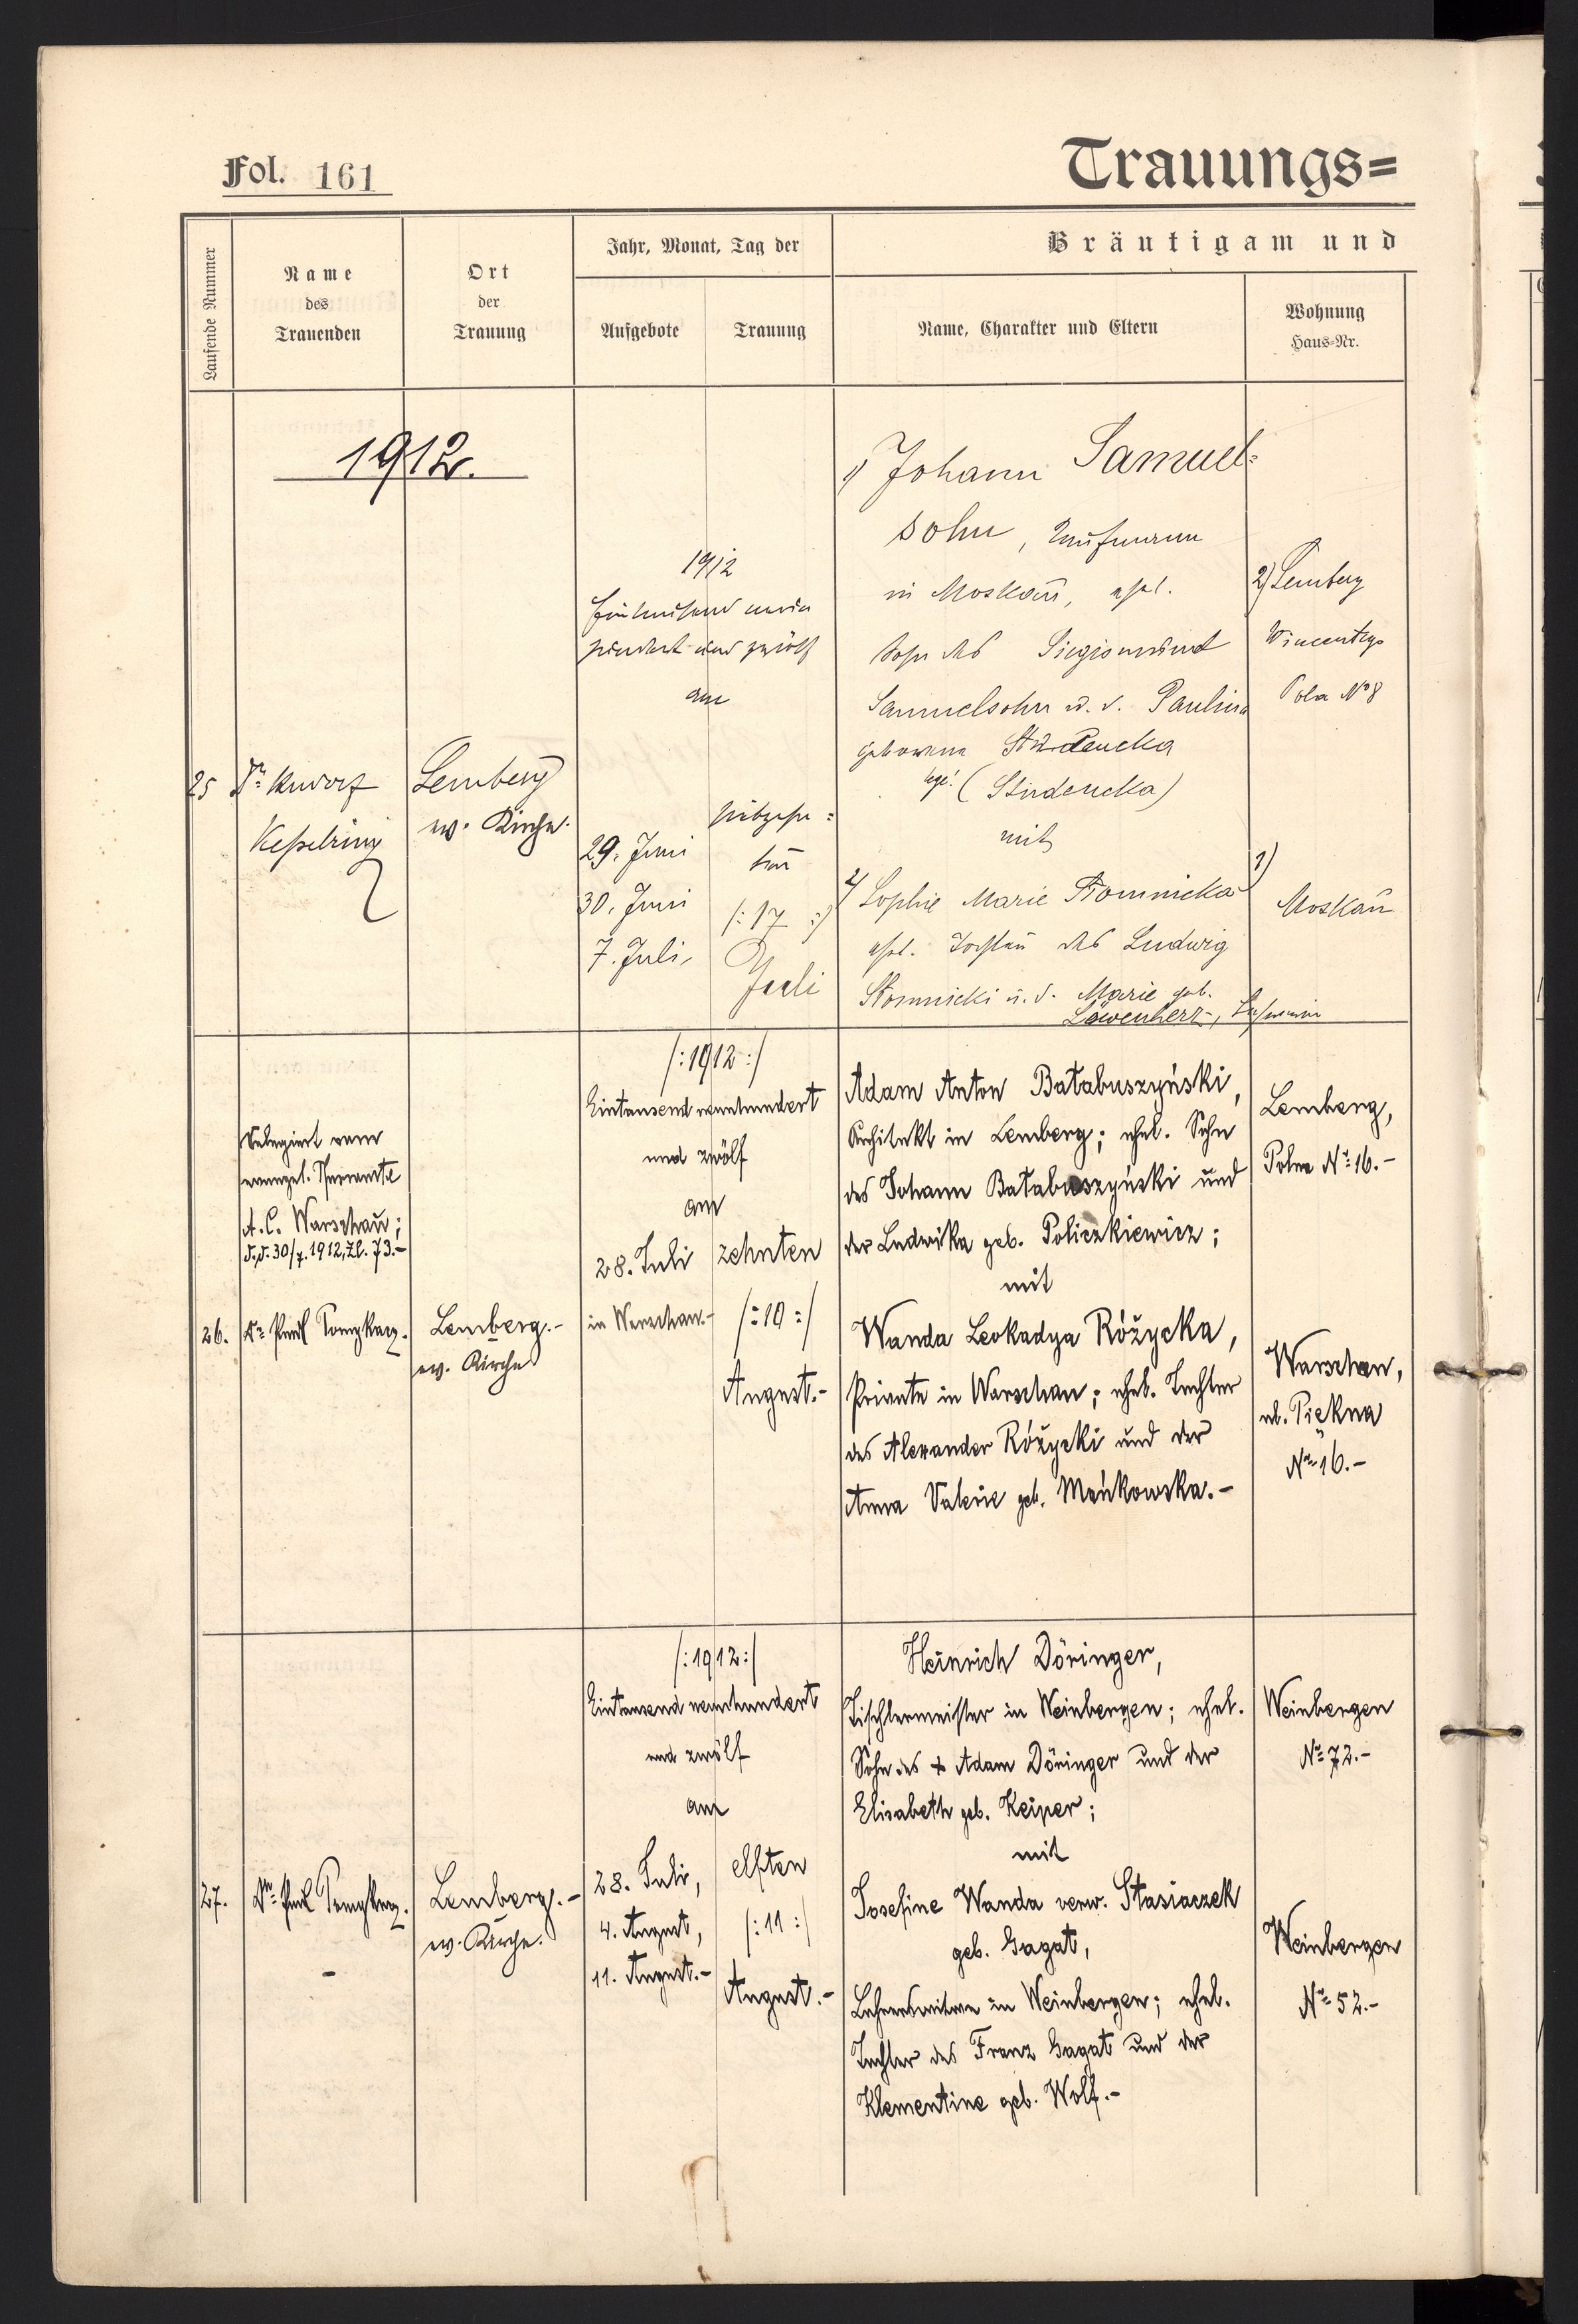 Fol. 161
Trauungs=
Laufende Nummer
Name
des
Trauenden
Ort
der
Trauung
Jahr, Monat, Tag der
Aufgebote
Trauung
Bräutigam und
Name, Charakter und Eltern
Wohnung
Haus-Nr.
1912.
25
Kesselring
Lemberg
ev. Kirche.
1912
hundert und zwölf
am
29. Juni
30. Juni
7. Juli,
siebzehn=
ten
/: 17 :/
Juli
1/ Johann Samuel=
sohn, Kaufmann
in Moskau, ehel.
Sohn des Siegismund
Samuelsohn u. d. Paulina
geborene Studencka
lege! (Studencka)
mit
2/ Sophie Marie Słomnicka
ehel. Tochter des Ludwig
Słomnicki u. d. Marie geb.
Löwenherz,
2) Lemberg
Wincentego
Pola No 8
1)
Moskau
26.
Delegiert vom
evangel. Pfarramte
A. C. Warschau;
d. d. 30/7. 1912, Zl. 73.-
Lemberg.-
ev. Kirche
/: 1912 :/
Eintausend neunhundert
und zwölf
am
28. Juli
in Warschau.-
zehnten
/: 10 :/
August.-
Adam Anton Bałabuszyński,
Architekt in Lemberg; ehel. Sohn
des Johann Bałabuszyński und
der Ludwika geb. Policzkiewicz;
mit
Wanda Leokadya Różycka,
Private in Warschau; ehel. Tochter
des Alexander Różycki und der
Anna Valerie geb. Mańkowska.-
Lemberg,
Polna No 16.-
Warschau,
ul. Piękna
No 16.-
27.
Lemberg.-
ev. Kirche.
/: 1912 :/
Eintausend neunhundert
und zwölf
am
28. Juli,
4. August,
11. August.-
elften
/: 11 :/
August.-
Heinrich Döringer,
Tischlermeister in Weinbergen; ehel.
Sohn des + Adam Döringer und der
Elisabeth geb. Keiper;
mit
Josefine Wanda verw. Stasiaczek
geb. Gagat,
Lehrerswitwe in Weinbergen; ehel.
Tochter des Franz Gagat und der
Klementine geb. Wolf.-
Weinbergen
No 72.-
Weinbergen
No 52.-